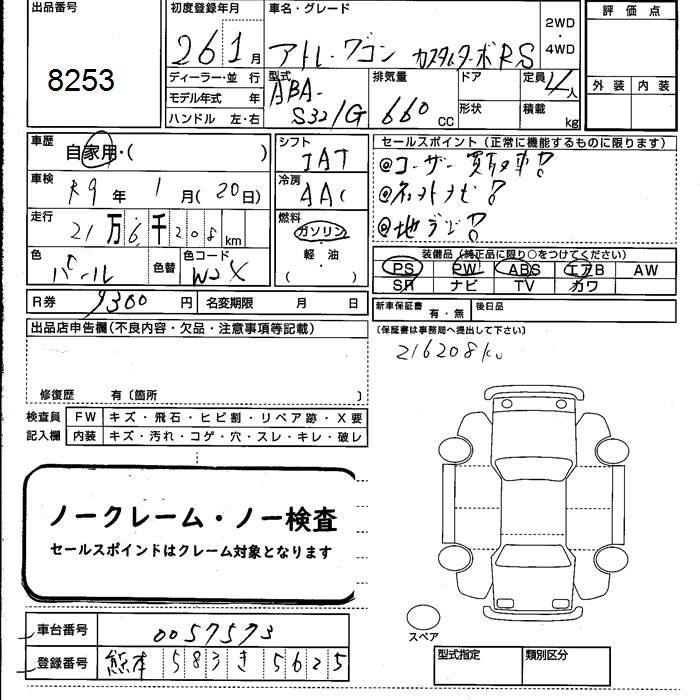 出品番号
8253
初度登録年月
26 1月
車名・グレード
アトレーワゴン カスタムターボRS
2WD
・
4WD
評価点
外装 内装
ディーラー・並行
モデル年式 年
ハンドル 左・右
型式
ABA-
S321G
排気量
660 cc
ドア
形状
定員
4人
積載
kg
車歴
自家用・( )
車検
R9年 1月(20日)
走行
21万6千208km
色
パール
色替
色コード
W24
シフト
IAT
冷房
AAC
燃料
ガソリン
・
軽・油
( )
セールスポイント(正常に機能するものに限ります)
◎ユーザー買取車!
◎ネットナビ!
◎地デジ!
装備品(純正品に限り○をつけてください)
PS PW ABS エアB AW
SR ナビ TV カワ
R券 9300円
名変期限 月 日
新車保証書
有・無
後日品
(保証書は事務局へ提出して下さい)
216208km
出品店申告欄(不良内容・欠品・注意事項等記載)
修復歴 有〔箇所 〕
検査員
記入欄
FW キズ・飛石・ヒビ割・リペア跡・X要
内装 キズ・汚れ・コゲ・穴・スレ・キレ・破レ
ノークレーム・ノー検査
セールスポインドはクレーム対象となります
スペア
車台番号 0057573
登録番号 熊本 583 き 5625
型式指定
類別区分